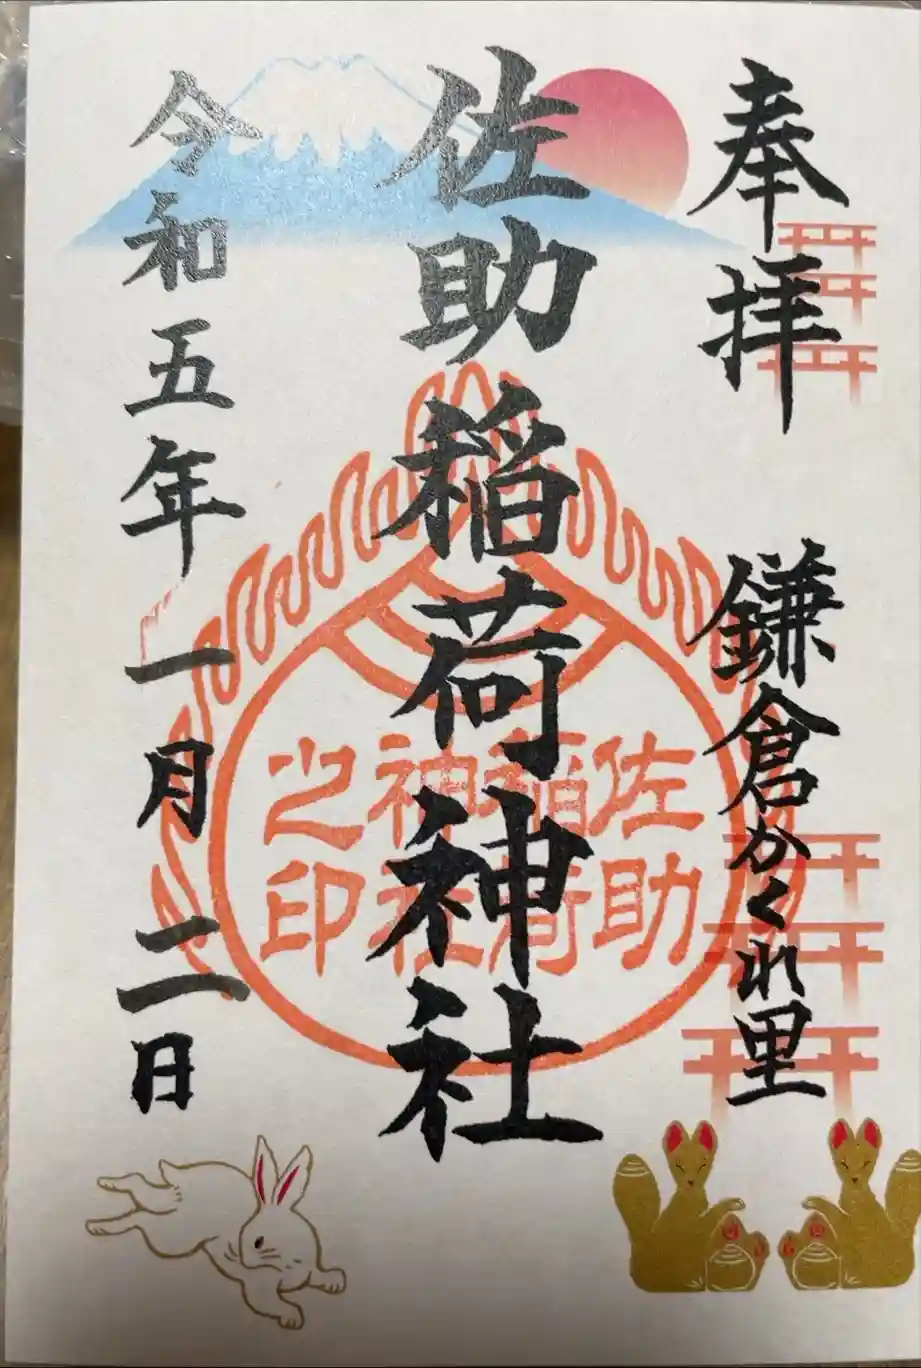 奉拝
鎌倉かくれ里
佐助稲荷神社
佐助
稲荷
神社
之印
令和五年一月二日